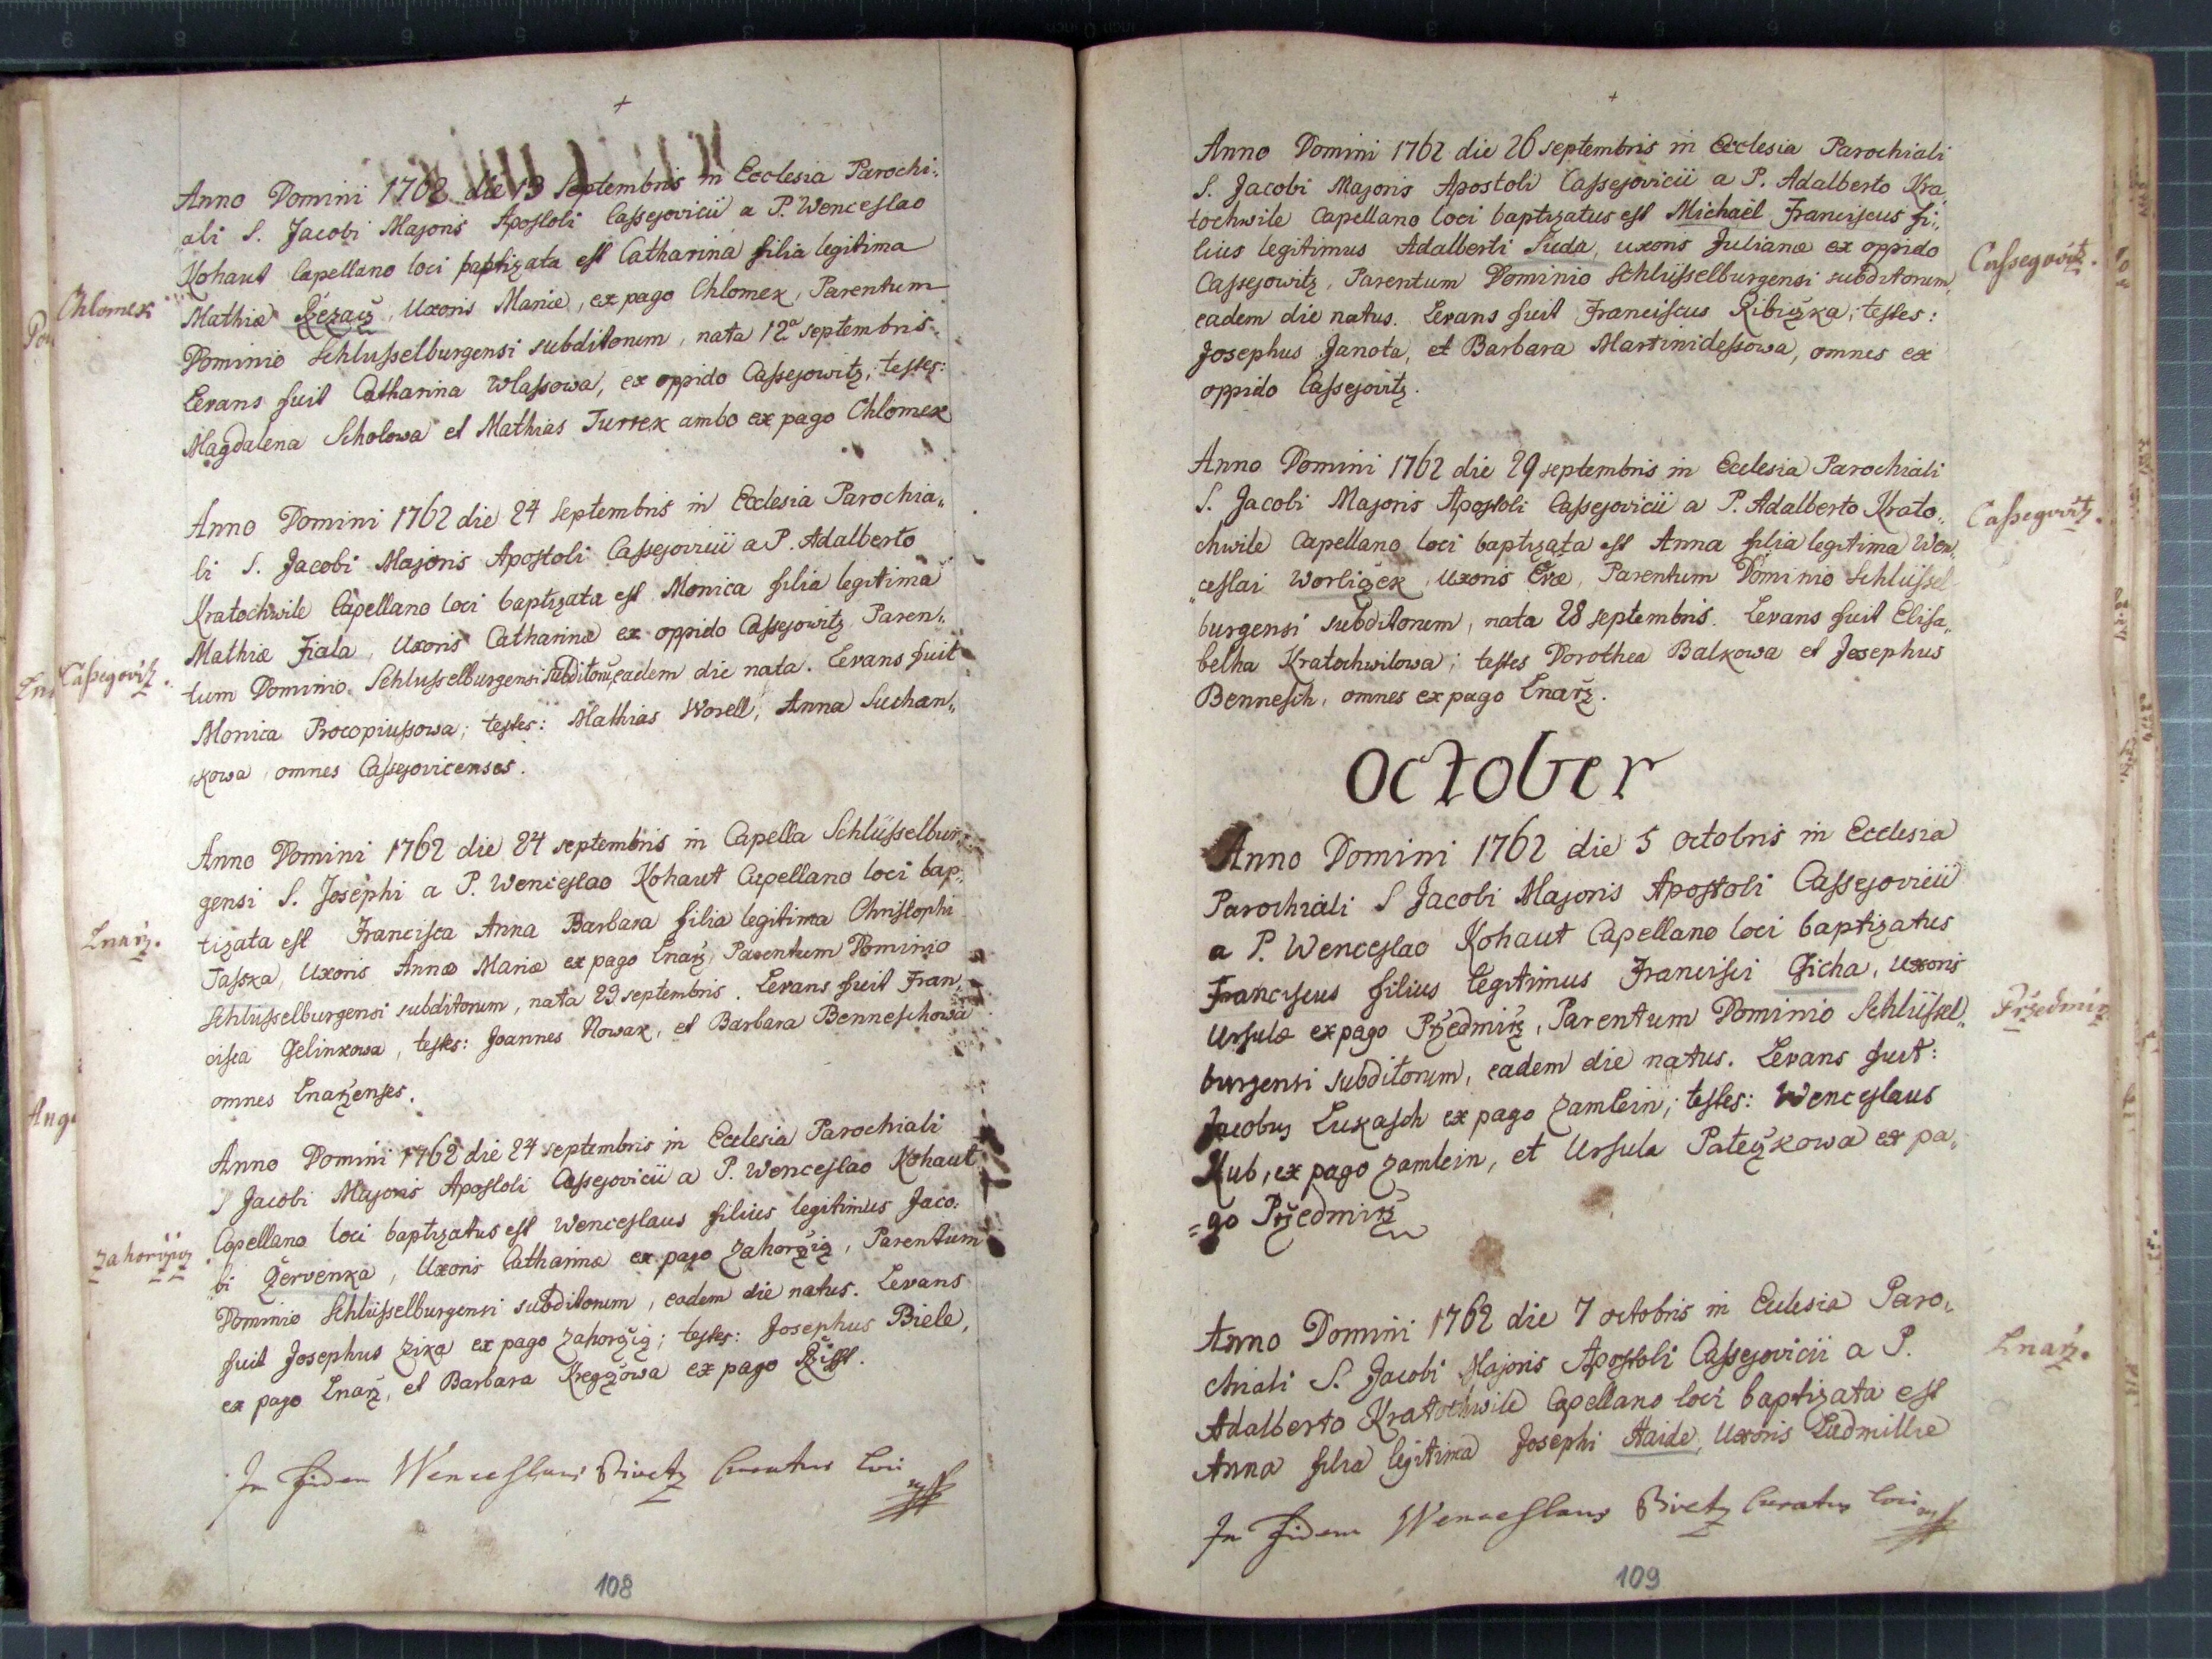 +
Anno Domini 1762 die 13 Septembris in Ecclesia Parochi:
ali S. Jacobi Majoris Apostoli Cassejovicii a P. Wenceslao
Kohaut Capellano loci baptizata est Catharina filia legitima
Chlomek
Mathiæ Ržezacz, Uxoris Mariæ, ex pago Chlomek, Parentum
Dominio Schlusselburgensi subditorum, nata 12a septembris.
Levans fuit Catharina Wlassowa, ex oppido Cassejowitz, testes:
Magdalena Scholowa et Mathias Turrek ambo ex pago Chlomek
Anno Domini 1762 die 24 septembris in Ecclesia Parochia„
li S. Jacobi Majoris Apostoli Cassejovicii a P. Adalberto
Kratochwile Capellano loci baptizata est Monica filia legitima
Mathiæ Fiala, Uxoris Catharinæ ex oppido Cassejowitz, Paren„
Cassegovitz.
tum Dominio Schlusselburgensi subditorū, eadem die nata. Levans fuit
Monica Procopiussowa; testes: Mathias Worell, Anna Suchan„
kowa omnes Cassejovicenses.
Anno Domini 1762 die 24 septembris in Capella Schlüsselbur„
gensi S. Josephi a P. Wenceslao Kohaut Capellano loci bap„
tizata est Francisca Anna Barbara filia legitima Christophi
Lnarz.
Tasska, Uxoris Annæ Mariæ ex pago Lnarz, Parentum Dominio
Schlüsselburgensi subditorum, nata 23 septembris. Levans fuit Fran„
cisca Gelinkowa, testes: Joannes Nowak, et Barbara Benneschowa
omnes Lnarzenses.
Anno Domini 1762 die 24 septembris in Ecclesia Parochiali
S Jacobi Majoris Apostoli Cassejovicii a P. Wenceslao Kohaut
Capellano loci baptizatus est Wenceslaus filius legitimus Jaco:
Zahorzicz.
bi Czervenka, Uxoris Catharinæ ex pago Zahorzicz, Parentum
Dominio Schlüsselburgensi subditorum, eadem die natus. Levans
fuit Josephus Zika ex pago Zahorzicz; testes: Josephus Biele,
ex pago Lnarz, et Barbara Kregczowa ex pago
In fidem Wenceslaus Curatus loci
108
+
Anno Domini 1762 die 26 septembris in Ecclesia Parochiali
S. Jacobi Majoris Apostoli Cassejovicii a P. Adalberto Kra
tochwile Capellano loci baptizatus est Michaël Franciscus fi„
lius legitimus Adalberti Suda, uxoris Julianæ ex oppido
Cassegovitz.
Cassejowitz, Parentum Dominio Schlüsselburgensi subditorum,
eadem die natus. Levans fuit Franciscus Ribiczka; testes:
Josephus Janota, et Barbara Martinidessowa, omnes ex
oppido Cassejovitz.
Anno Domini 1762 die 29 septembris in Ecclesia Parochiali
S. Jacobi Majoris Apostoli Cassejovicii a P. Adalberto Krato„
Cassegovitz.
chwile Capellano loci baptizata est Anna filia legitima Wen„
„ceslai Worliczek, Uxoris Evæ, Parentum Dominio Schlüssel
burgensi subditorum, nata 28 septembris. Levans fuit Elisa„
betha Kratochwilowa; testes Dorothea Balkowa et Josephus
Bennesch, omnes ex pago Lnarz.
October
Anno Domini 1762 die 5 octobris in Ecclesia
Parochiali S Jacobi Majoris Apostoli Cassejovicii
a P. Wenceslao Kohaut Capellano loci baptizatus
Franciscus filius legitimus Francisci Gicha, Uxoris
Przedmirz
Ursulæ ex pago Przedmirz, Parentum Dominio Schlüssel„
burgensi subditorum, eadem die natus. Levans fuit:
Jacobus Lukasch ex pago Zamlein; testes: Wenceslaus
Kub, ex pago Zamlein, et Ursula Pateczkowa ex pa„
=go Przedmirz
Anno Domini 1762 die 7 octobris in Ecclesia Paro„
Lnarz.
chiali S. Jacobi Majoris Apostoli Cassejovicii a P.
Adalberto Kratochwile Capellano loci baptizata est
Anna filia legitima Josephi Haide, Uxoris Ludmillæ
In fidem Wenceslaus Curatus loci
109